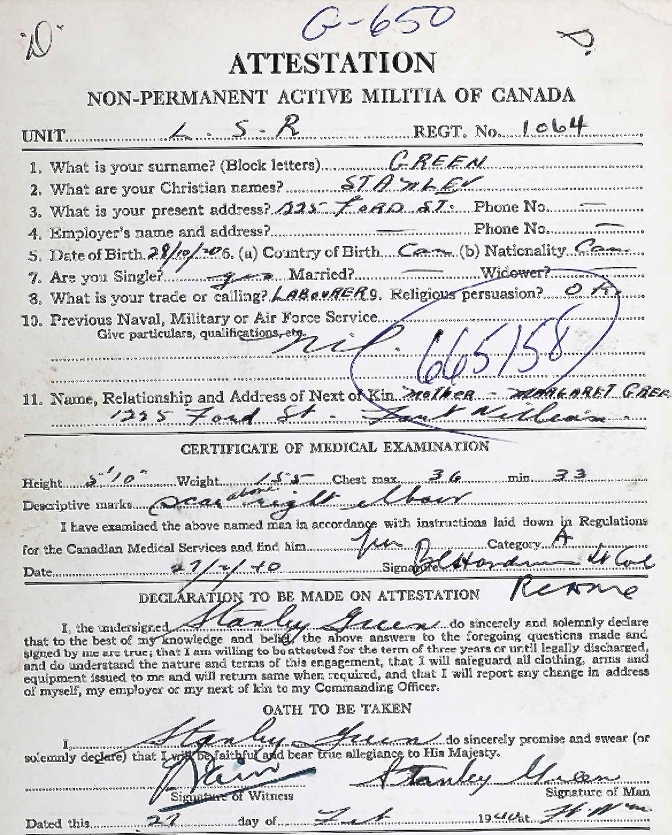 "D" G-650 D
ATTESTATION
NON-PERMANENT ACTIVE MILITIA OF CANADA
UNIT L. S. R REGT. No. 1064
1. What is your surname? (Block letters) GREEN
2. What are your Christian names? STANLEY
3. What is your present address? 1225 FORD ST. Phone No. —
4. Employer's name and address? Phone No. —
5. Date of Birth 28/10/20 6. (a) Country of Birth Can (b) Nationality Can
7. Are you Single? yes Married? — Widower? —
8. What is your trade or calling? LABOURER 9. Religious persuasion?
10. Previous Naval, Military or Air Force Service
Give particulars, qualifications, etc. nil.
665158
11. Name, Relationship and Address of Next of Kin Mother - MARGARET GREEN
1225 Ford St - Fort William
CERTIFICATE OF MEDICAL EXAMINATION
Height 5'10" Weight 155 Chest max. 36 min. 33
Descriptive marks scar above right elbow
I have examined the above named man in accordance with instructions laid down in Regulations
for the Canadian Medical Services and find him Category A
Date 27/2/40 Signature Lt Col
RCAMC
DECLARATION TO BE MADE ON ATTESTATION
I, the undersigned Stanley Green do sincerely and solemnly declare
that to the best of my knowledge and belief, the above answers to the foregoing questions made and
signed by me are true; that I am willing to be attested for the term of three years or until legally discharged,
and do understand the nature and terms of this engagement, that I will safeguard all clothing, arms and
equipment issued to me and will return same when required, and that I will report any change in address
of myself, my employer or my next of kin to my Commanding Officer.
OATH TO BE TAKEN
I, Stanley Green do sincerely promise and swear (or
solemnly declare) that I will be faithful and bear true allegiance to His Majesty.
Stanley Green
Signature of Witness Signature of Man
Dated this 27 day of Feb 1940 at Ft Wm